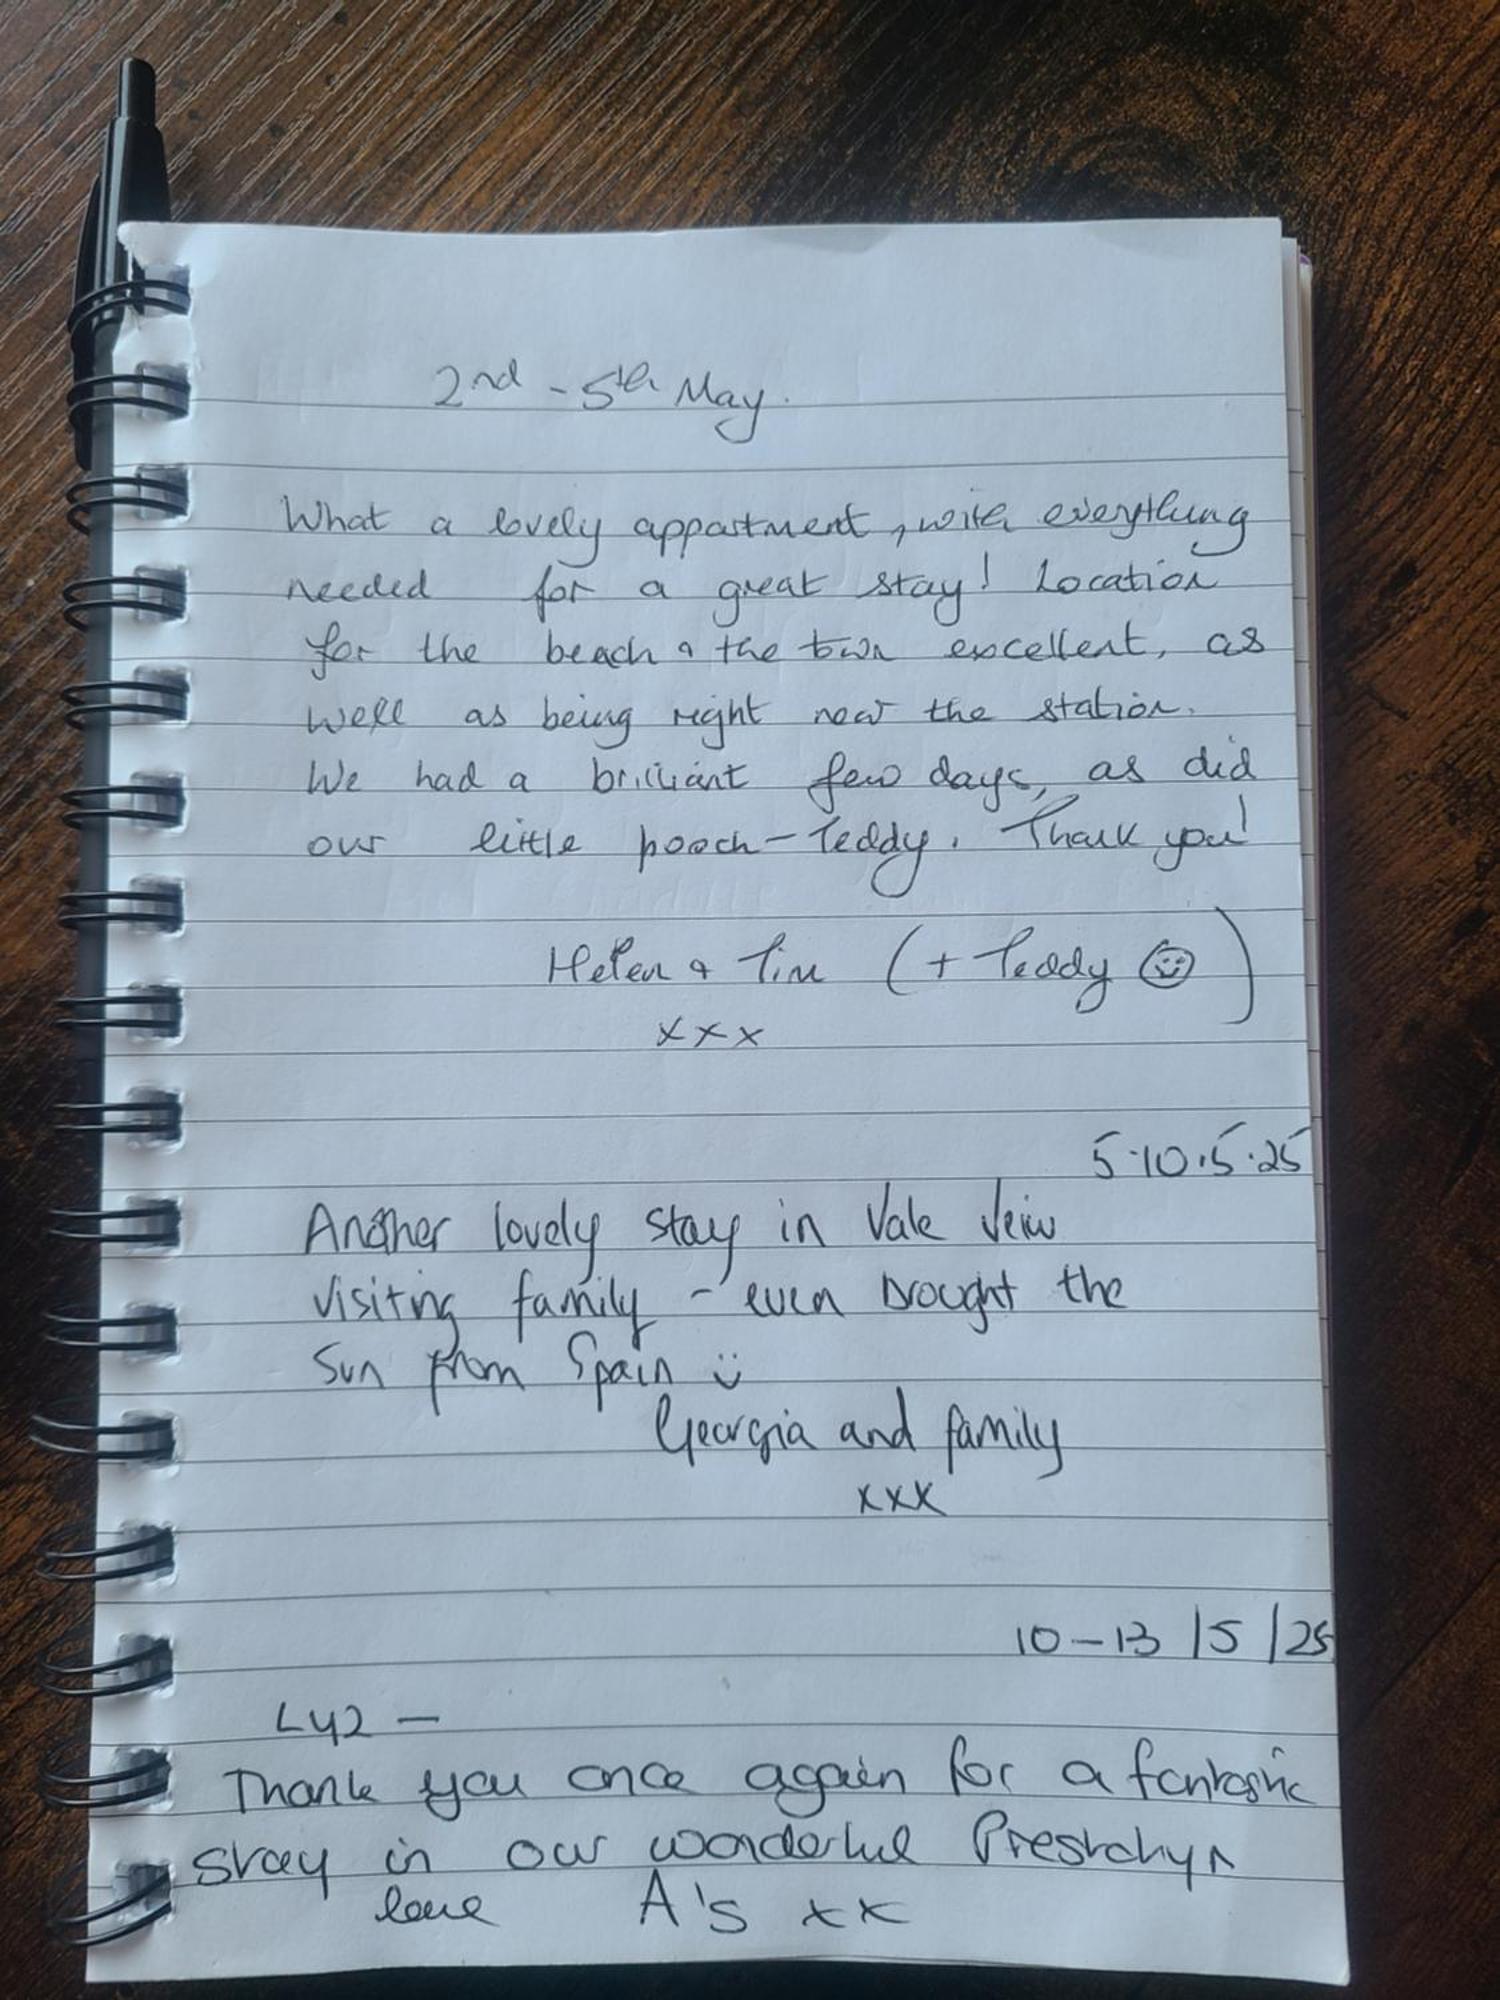 2nd - 5th May.
What a lovely appartment, with everything
needed for a great stay! Location
for the beach & the town excellent, as
well as being right near the station.
We had a brilliant few days, as did
our little pooch - Teddy. Thank you!
Helen & Tim (+ Teddy ☺)
xxx
5.10.5.25
Another lovely stay in Vale Veiw
visiting family - even brought the
Sun from Spain ü
Georgia and family
xxx
10-13/5/25
Ly2 -
Thank you once again for a fantastic
stay in our wonderful Prestatyn
love A's xx